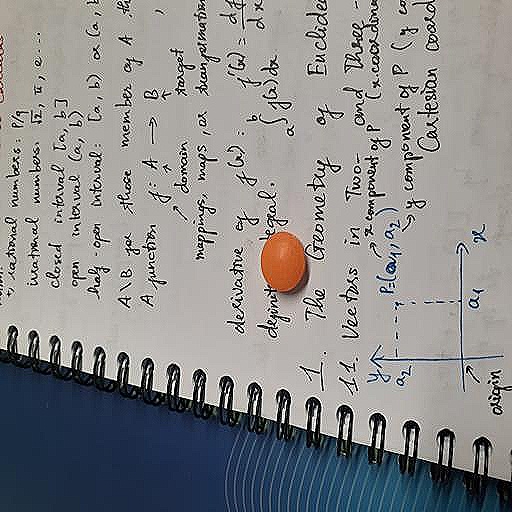 rational numbers: p/q
irrational numbers: √2, π, e ...
closed interval [a, b]
open interval (a, b)
half-open interval: [a, b) or (a, b
A\B for those member of A
A function f: A → B
domain target
mappings, maps, or transformation
derivative of f(x): f'(x) = df
dx
definite integral. a∫b f(x) dx
1. The Geometry of Euclide
1.1. Vectors in Two- and Three-
x component of P (x coordin
P=(a1, a2) y component of P (y co
Cartesian coord
y
a2
a1
x
origin